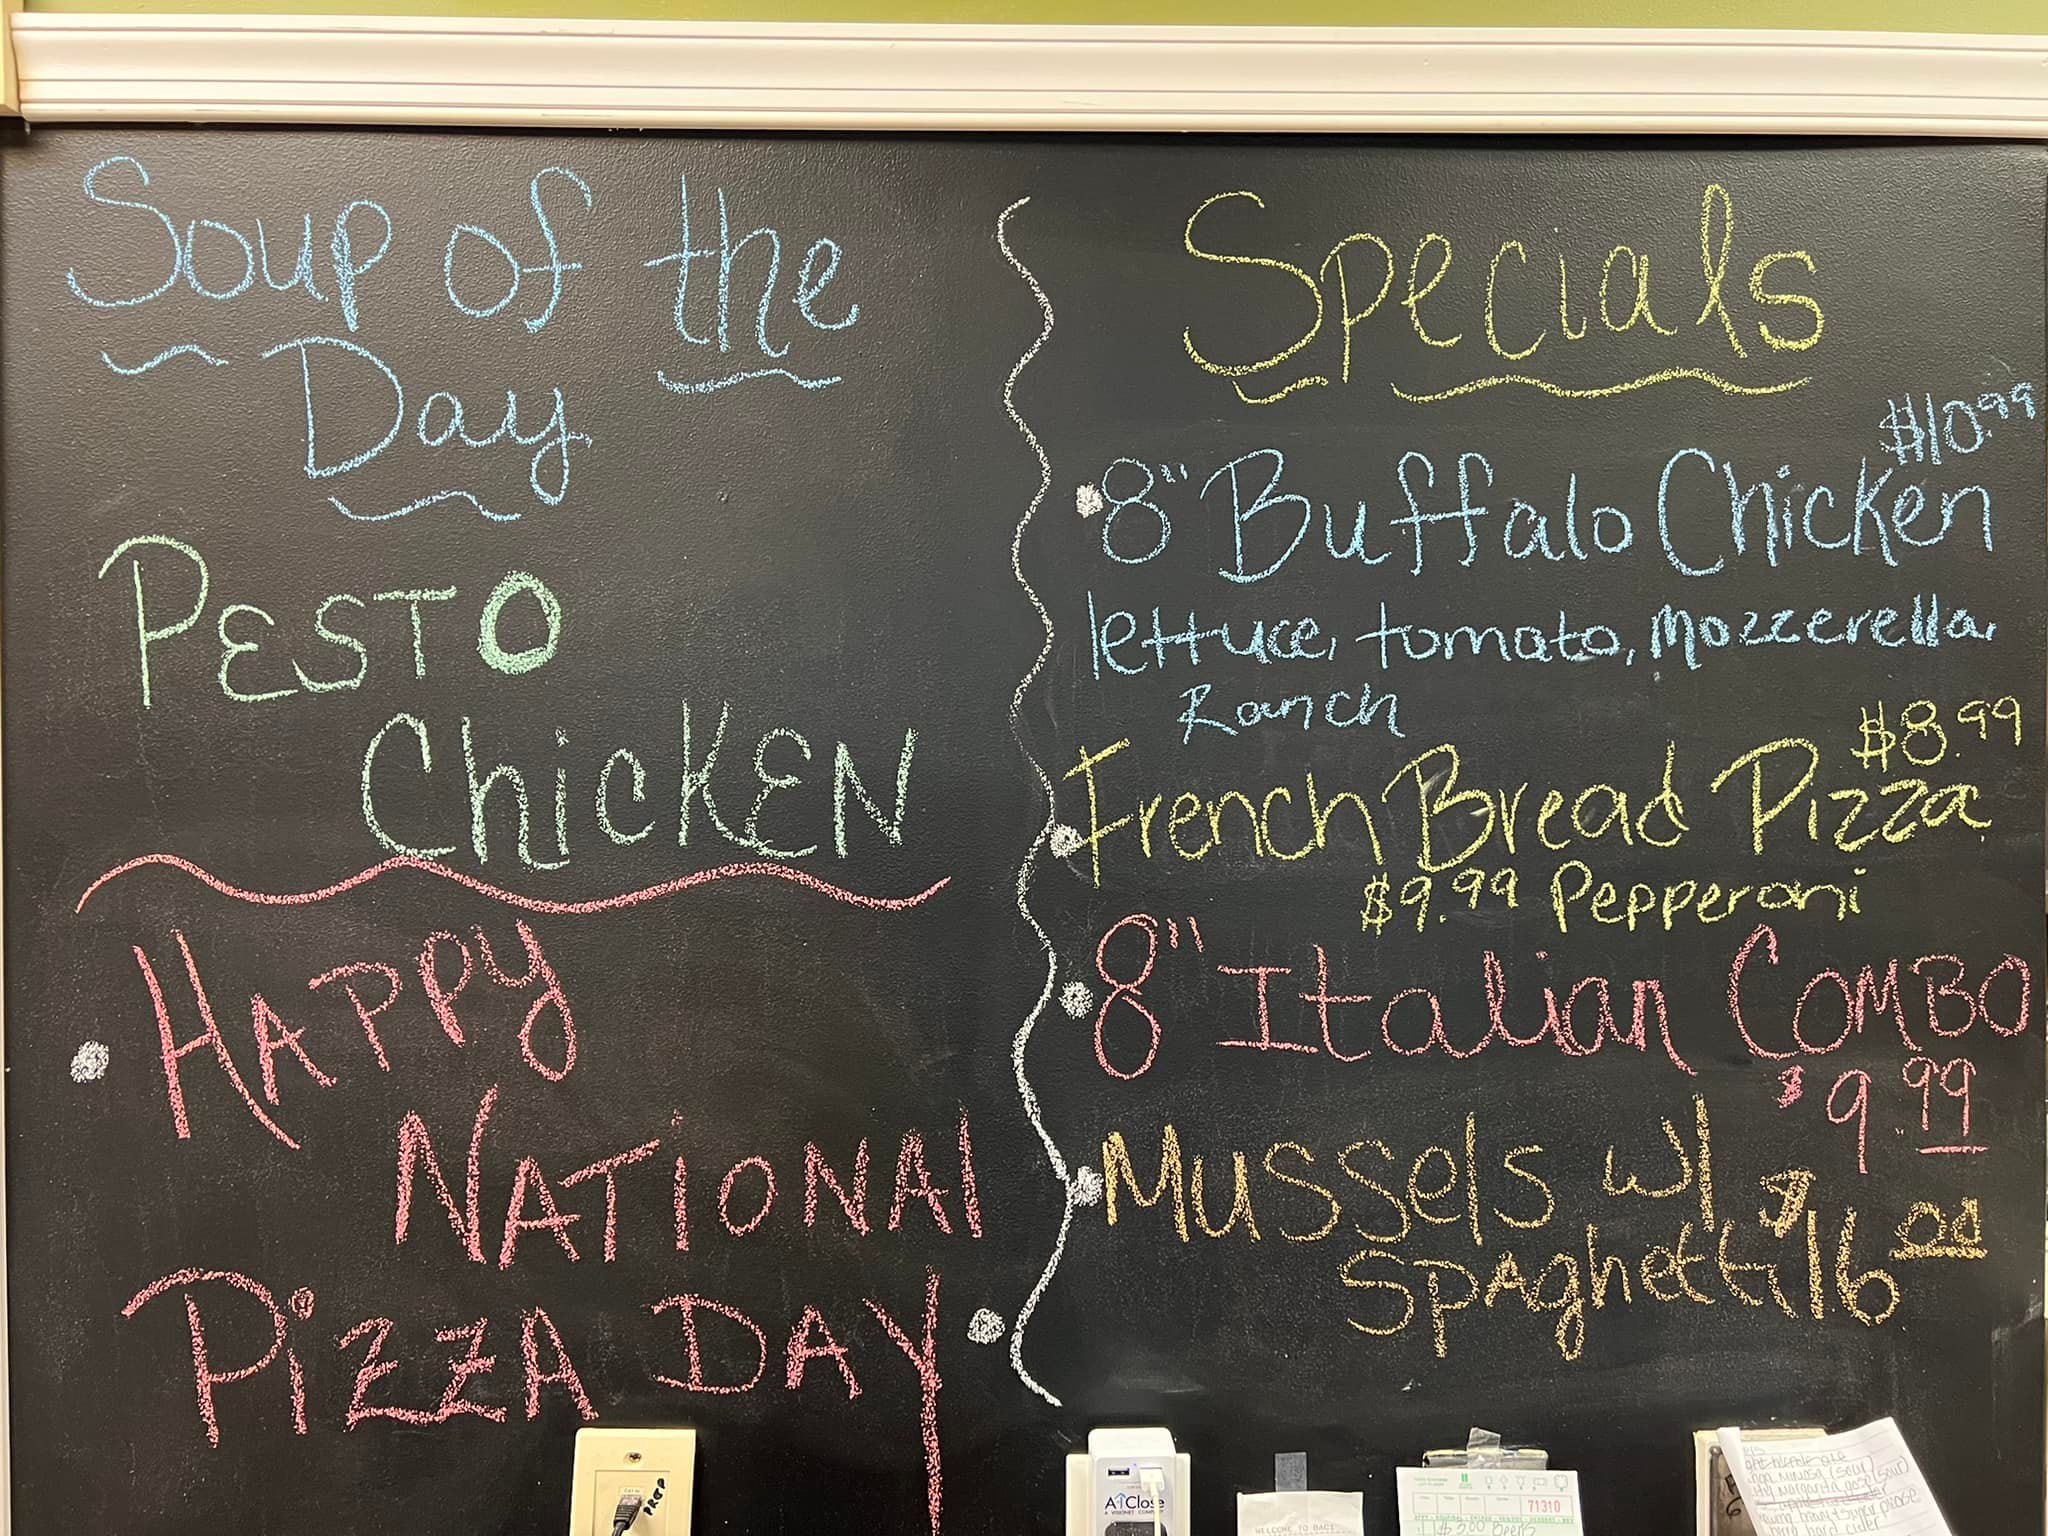 Soup of the
Day
PESTO
ChicKEN
HAPPy
NATiONAl
PizzA DAY
Specials
$10.99
8" Buffalo Chicken
lettuce, tomato, Mozzerella,
Ranch
$8.99
French Bread Pizza
$9.99 Pepperoni
8" Italian COMBO
$9.99
Mussels w/
Spaghetti $16.00
PREP
A1Close
A VISIONET COMPANY
WELCOME TO
71310
$5.00 Beers